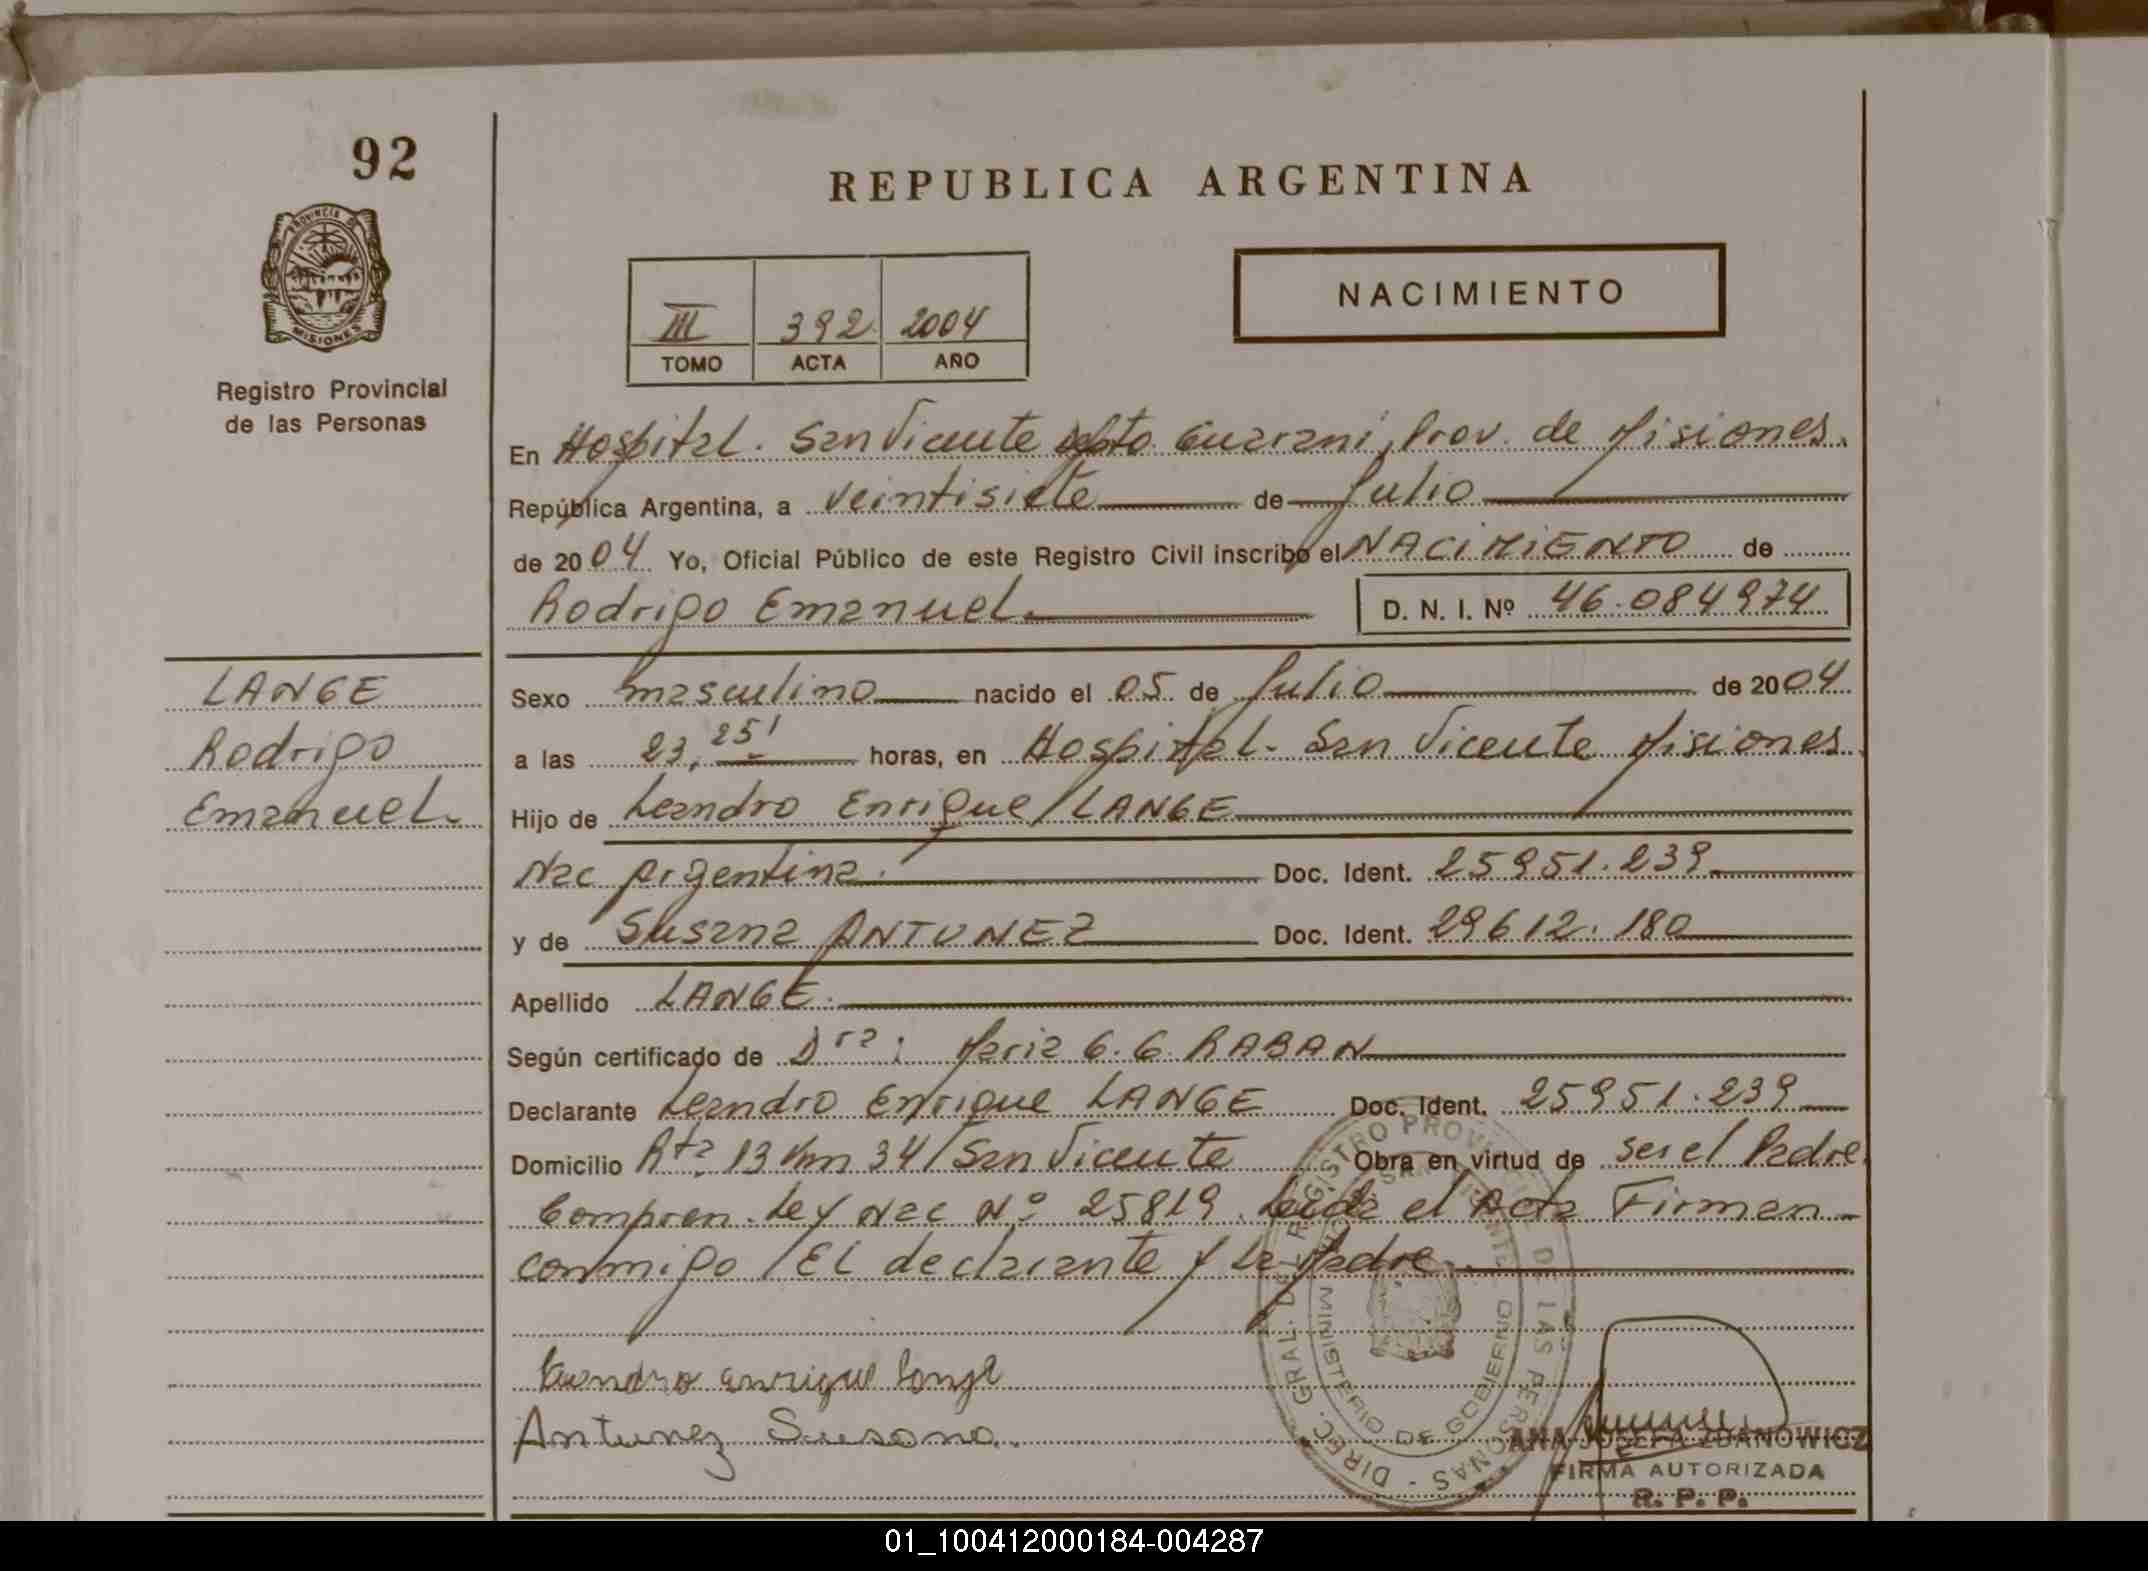 92
REPUBLICA ARGENTINA
PROVINCIA DE
MISIONES
Registro Provincial
de las Personas
III 392 2004
TOMO ACTA AÑO
NACIMIENTO
En Hospital. San Vicente Dpto. Guarani, Prov. de Misiones.
República Argentina, a veintisiete de Julio
de 2004 Yo, Oficial Público de este Registro Civil inscribo el NACIMIENTO de
Rodrigo Emanuel D. N. I. Nº 46.084974
LANGE
Rodrigo
Emanuel.
Sexo masculino nacido el 05 de Julio de 2004
a las 23,25' horas, en Hospital. San Vicente Misiones.
Hijo de Leandro Enrique / LANGE
Nac Argentina. Doc. Ident. 25951.239
y de Susana ANTUNEZ Doc. Ident. 29612.180
Apellido LANGE.
Según certificado de Dra: Maria G. G. RABAN
Declarante Leandro Enrique LANGE Doc. Ident. 25951.239
Domicilio Rta. 13 Km 34 / San Vicente Obra en virtud de ser el Padre.
Compren. Ley Nac Nº 25819. Leida el Acta Firman
conmigo / El declarante y la Madre.
Leandro enrique lange
Antunez Susana.
DIREC. GRAL. DEL REGISTRO PROVINCIAL DE LAS PERSONAS
MINISTERIO DE GOBIERNO
ANA JOSEFA ZDANOWICZ
FIRMA AUTORIZADA
R. P. P.
01_100412000184-004287